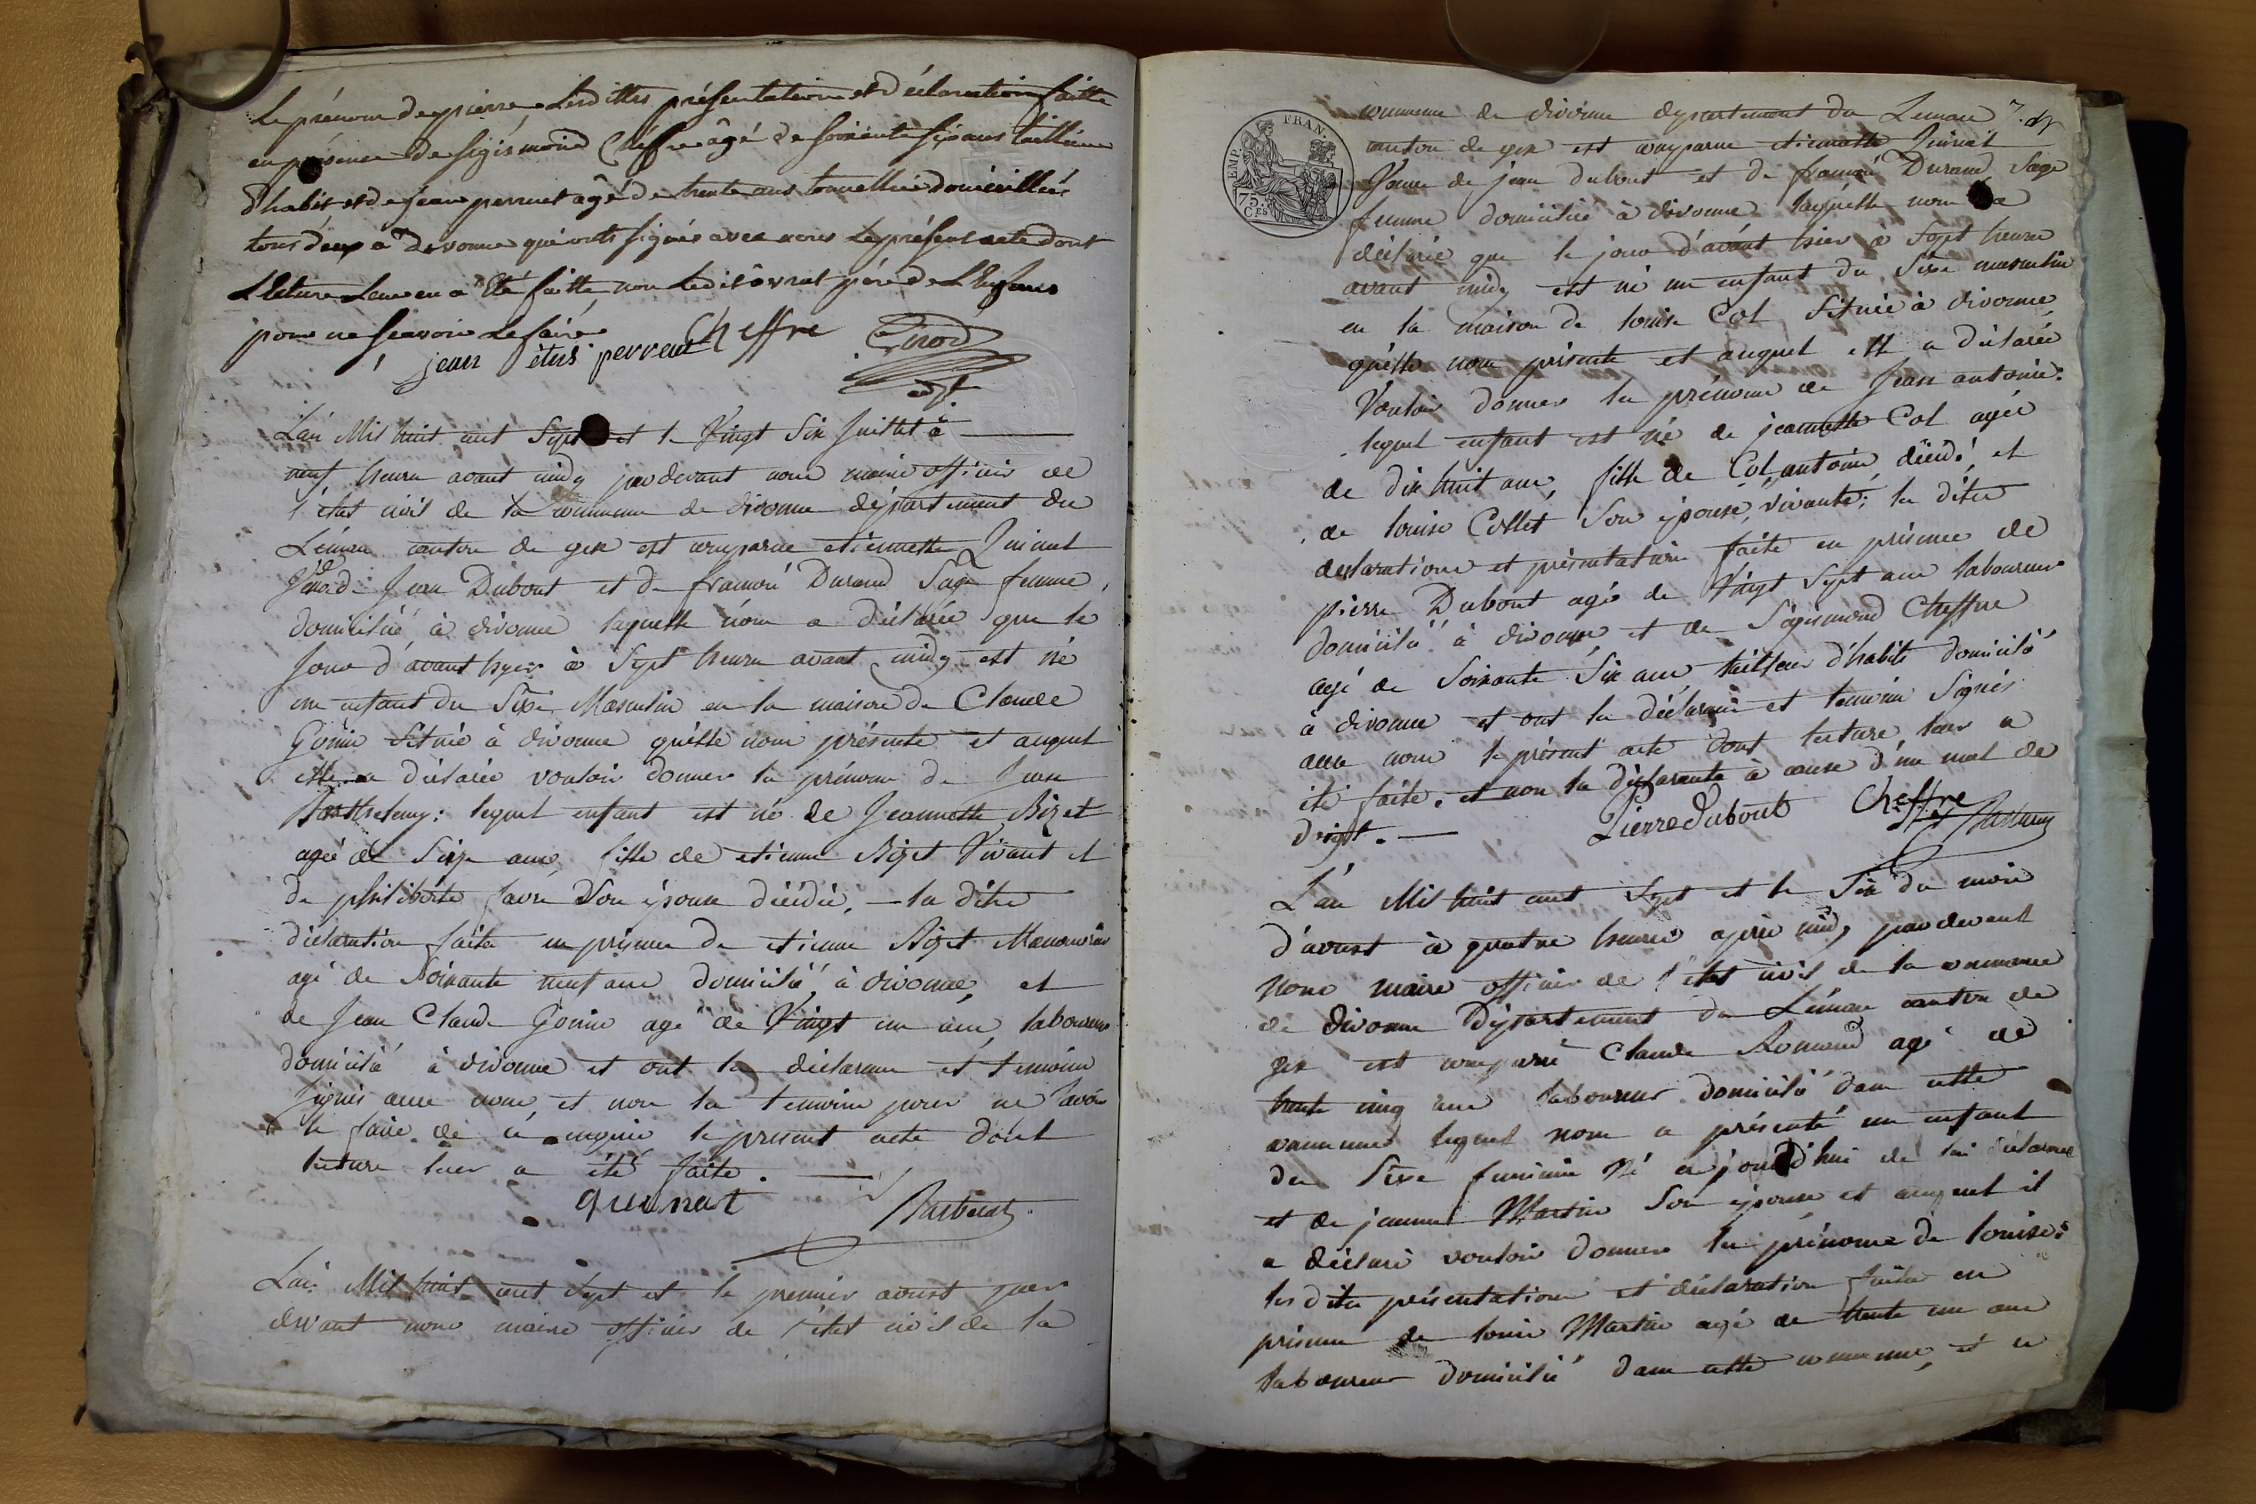 Le prénom de pierre, Lesdittes présentation et déclaration faitte
en présence de sigismond Cheffre âgé de soixente six ans tailleur
d'habit et de jean perruet âgé de trente ans tonnellier domicilliés
tous deux à Divonne qui onts signés avec nous Le présent acte dont
Lecture Leur en a Eté faitte, non Ledit père de L'Enfans
pour ne scavoir Le faire
jean perreut Cheffre Girod
adjt
L'an Mil huit cent Sept et le Vingt Six Juillet à
neuf heure avant midy pardevant nous maire officier de
l'état civil de la commune de divonne département du
Léman canton de gex est comparue etiennette Quinat
de Jean Dubout et de Durand Sage femme,
domiciliée à divonne laquelle nous a déclarée que le
Jour d'avant hyer à Sept heure avant midy est né
un enfant du Sexe Masculin en la maison de Claude
Gonin Située à divonne qu'elle nous présente et auquel
elle a déclarée vouloir donner le prénom de Jean
Barthelemy: lequel enfant est né de Jeannette Bizet
agée de Seize ans, fille de etienne Bizet Vivant et
de philiberte favre Son épouse décédée, — la dite
déclaration faite en présence de etienne Bizet Manouvrier
agé de Soixante neuf ans domicilié à divonne, et
de Jean Claude Gonin agé de Vingt un ans, laboureur
domicilié à divonne et ont la déclarante et temoins
Signés avec nous, et non la temoins pour ne Savoir
le faire de ce enquis le present acte dont
lecture leur a été faite.
quinat
L'an Mil huit cent Sept et le premier avust par
devant nous maire officier de l'état civil de la
7.
FRAN.
TEMP.
75.
CES
commune de divonne département du Leman
canton de gex est comparue etiennette Quinat
de jean dubout et de Durand Sage
femme domiciliée à divonne laquelle nous a
déclarée que le jour d'avant hier à Sept heure
avant midy est né un enfant du Sexe masculin
en la maison de louise Col Située à divonne
qu'elle nous présente et auquel elle a déclarée
Vouloir donner le prénom de Jean antoine:
lequel enfant est né de jeannette Col agée
de dix huit ans, fille de Col antoine décédé, et
de louise Collet Son épouse, vivante; la dite
declaration et présentation faite en présence de
pierre Dubout agé de Vingt Sept ans laboureur
domicilié à divonne, et de Sigismond Cheffre
agé de Soixante Six ans tailleur d'habits domicilié
à divonne et ont la déclarante et temoins Signés
avec nous le présent acte dont lecture leur a
été faite. et non la déclarante à cause d'un mal de
doigt. —
Pierre Dubout Cheffre
L'an Mil huit cent Sept et le Six du mois
d'avust à quatre heures après midy pardevant
Nous maire officier de l'état civil de la commune
de divonne Département du Léman canton de
gex est comparu Claude Romand agé de
trente cinq ans laboureur domicilié dans cette
commune lequel nous a présenté un enfant
du Sexe feminin Né aujourd'hui de lui déclarant
et de jeanne Martin Son épouse et auquel il
a déclaré vouloir donner le prénom de louise:
les dites présentation et déclaration faites en
présence de louis Martin agé de trente un ans
laboureur domicilié dans cette commune, et de